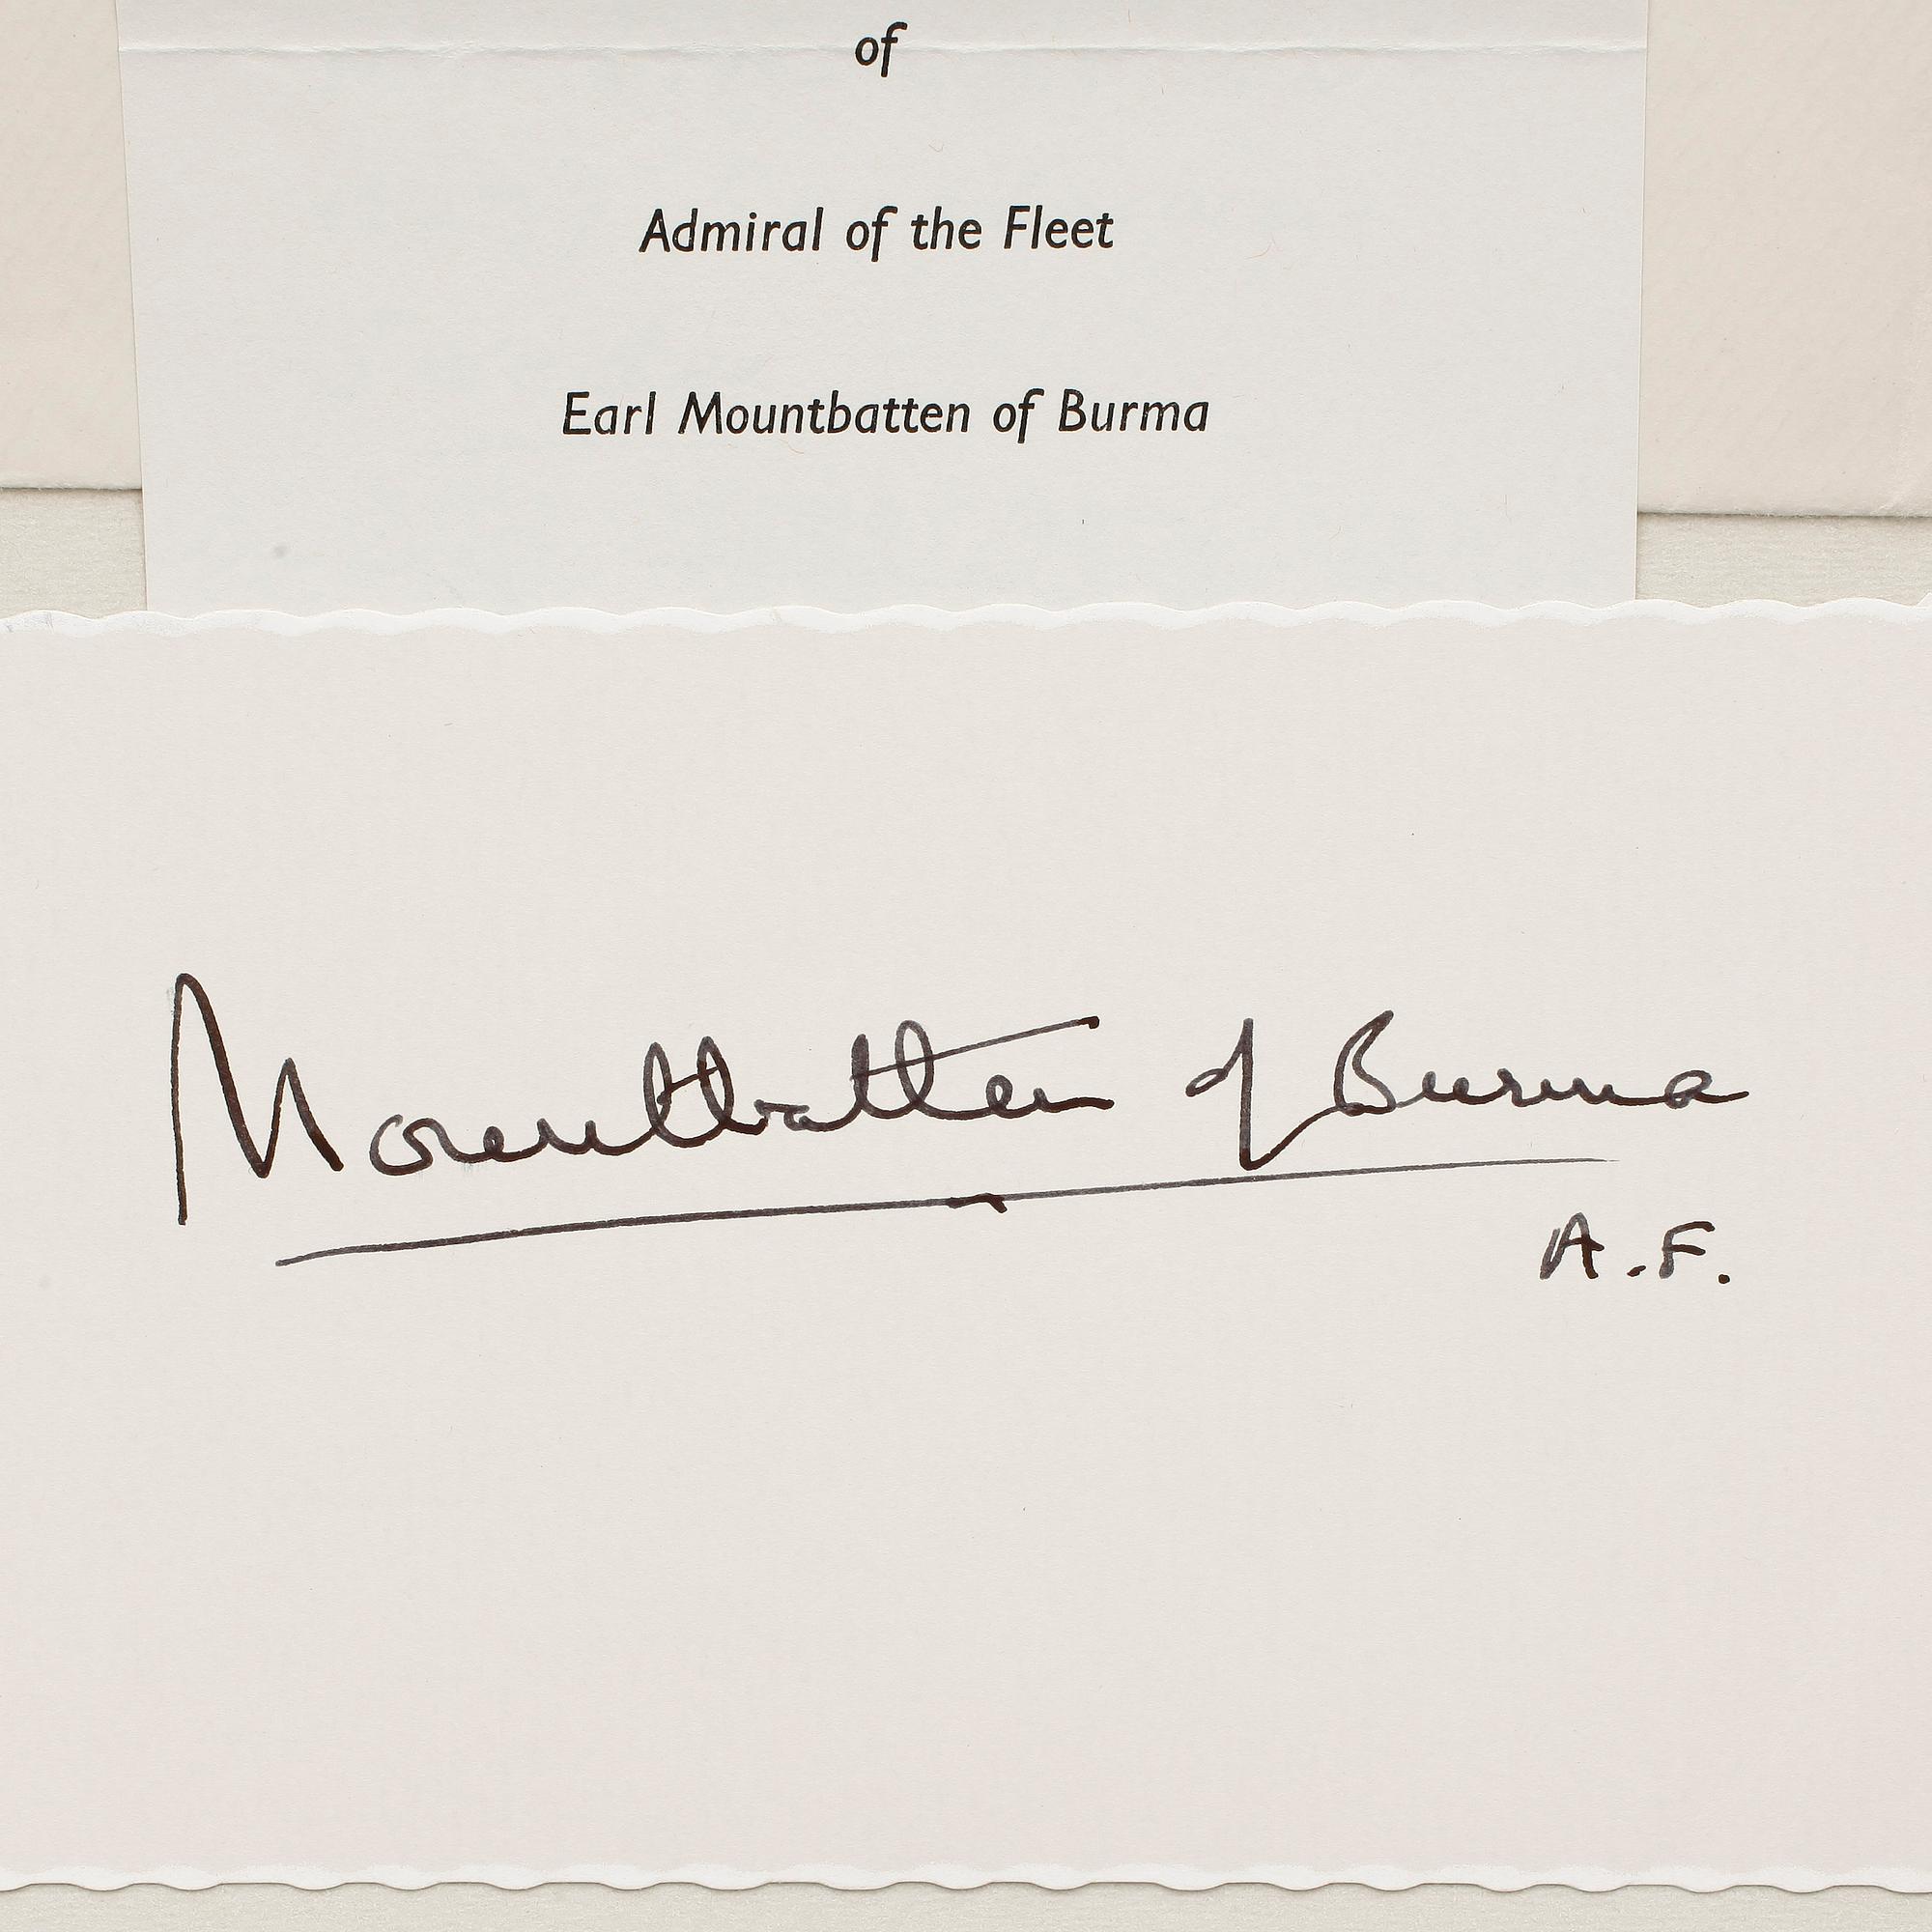 of
Admiral of the Fleet
Earl Mountbatten of Burma
Mountbatten of Burma
A.F.